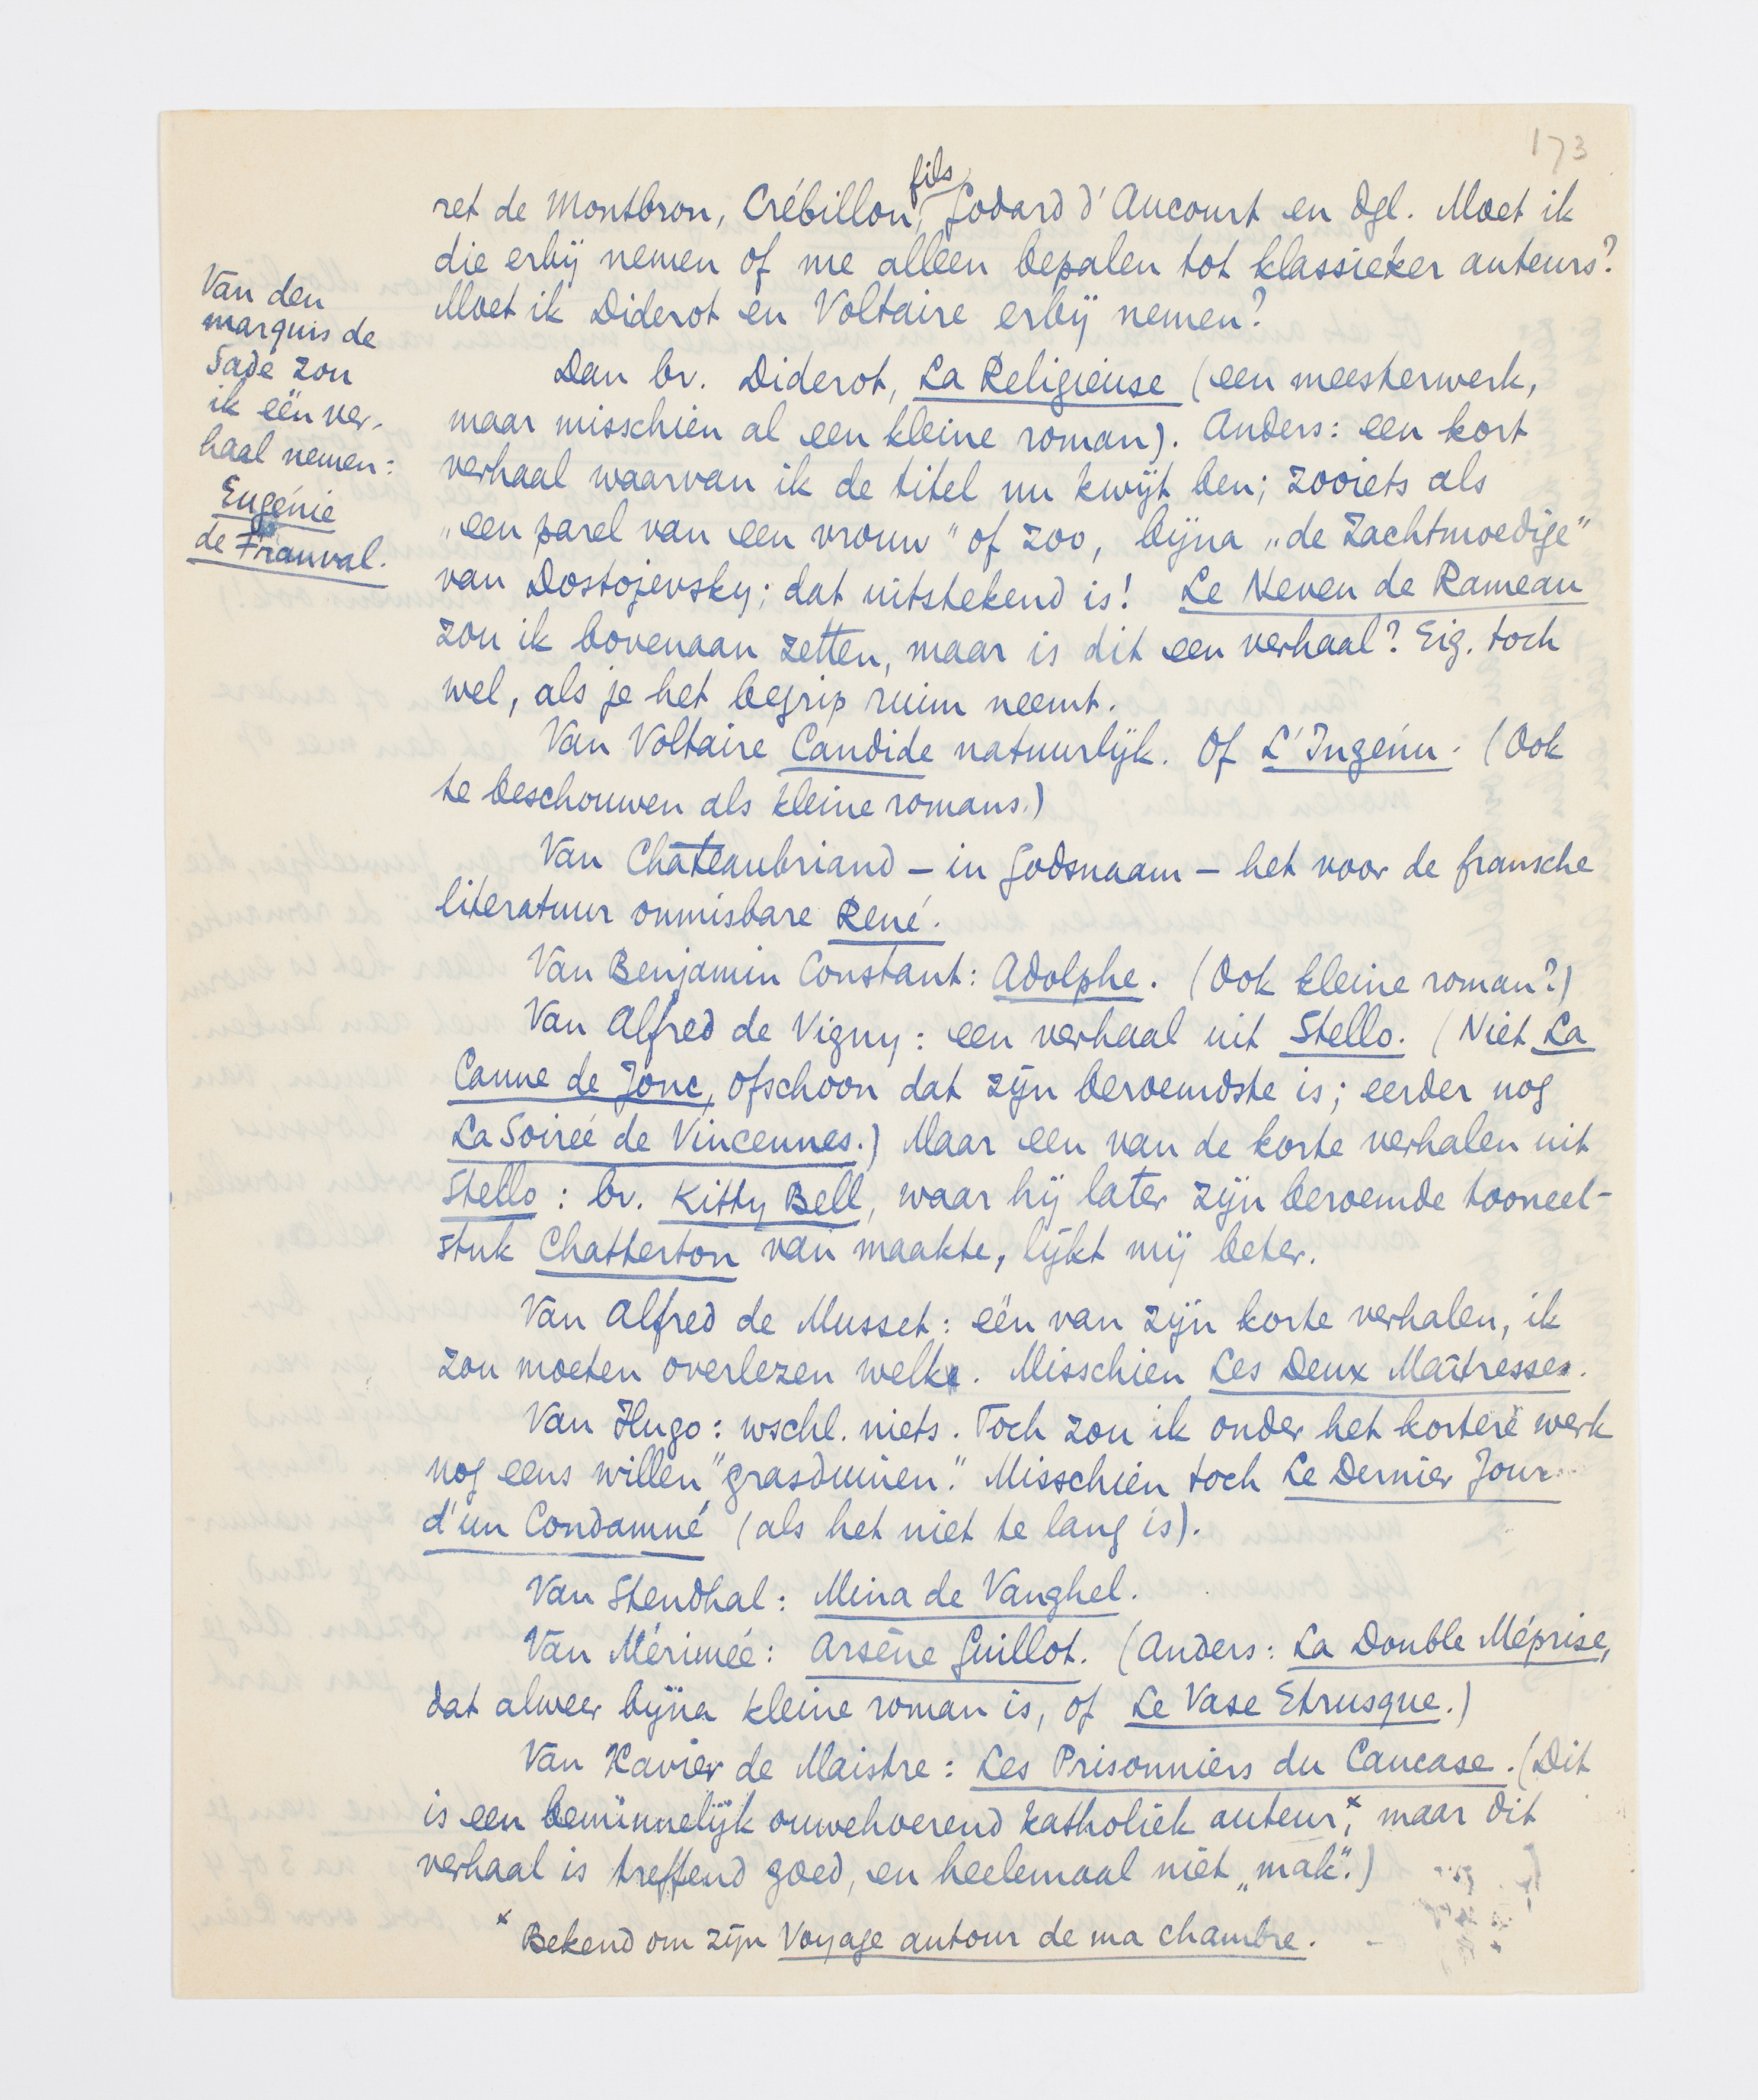 173
ret de Montbron, Crébillon fils, Godard d'Aucourt en dgl. Moet ik
die erbij nemen of me alleen bepalen tot klassieker auteurs?
Moet ik Diderot en Voltaire erbij nemen?
Van den
marquis de
Sade zou
ik één ver-
haal nemen:
Eugénie
de Franval.
Dan bv. Diderot, La Religieuse (een meesterwerk,
maar misschien al een kleine roman). Anders: een kort
verhaal waarvan ik de titel nu kwijt ben; zooiets als
„een parel van een vrouw" of zoo, bijna „de Zachtmoedige"
van Dostojevsky; dat uitstekend is! Le Neveu de Rameau
zou ik bovenaan zetten, maar is dit een verhaal? Eig. toch
wel, als je het begrip ruim neemt.
Van Voltaire Candide natuurlijk. Of L'Ingénu. (Ook
te beschouwen als kleine romans.)
Van Châteaubriand – in Godsnaam – het voor de fransche
literatuur onmisbare René.
Van Benjamin Constant: Adolphe. (Ook kleine roman?)
Van Alfred de Vigny: een verhaal uit Stello. (Niet La
Canne de Jonc, ofschoon dat zijn beroemdste is; eerder nog
La Soirée de Vincennes.) Maar een van de korte verhalen uit
Stello: bv. Kitty Bell, waar hij later zijn beroemde tooneel-
stuk Chatterton van maakte, lijkt mij beter.
Van Alfred de Musset: één van zijn korte verhalen, ik
zou moeten overlezen welke. Misschien Les Deux Maîtresses.
Van Hugo: wschl. niets. Toch zou ik onder het kortere werk
nog eens willen "grasduinen." Misschien toch Le Dernier Jour
d'un Condamné (als het niet te lang is).
Van Stendhal: Mina de Vanghel.
Van Mérimée: Arsène Guillot. (Anders: La Double Méprise,
dat alweer bijna kleine roman is, of Le Vase Etrusque.)
Van Xavier de Maistre: Les Prisonniers du Caucase. (Dit
is een beminnelijk ouwehoerend katholiek auteur,* maar dit
verhaal is treffend goed, en heelemaal niet „mak".)
* Bekend om zijn Voyage autour de ma chambre.